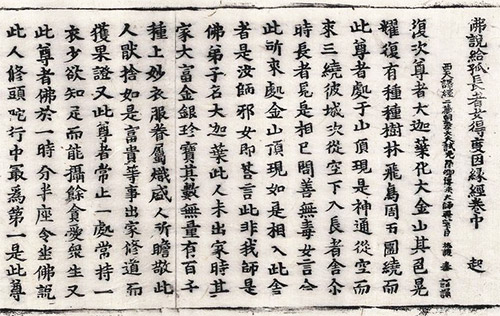 佛說給孤長者女得度因緣經卷中 起
西天譯經三藏朝奉大夫試光祿卿傳法大師賜紫臣 施護 奉 詔譯
復次尊者大迦葉化大金山其色晃
耀復有種種樹林飛鳥周帀圍繞而
此尊者處于山頂現是神通從空而
來三繞彼城次從空下入長者舍尒
時長者見是相已問善無毒女言今
此所來處金山頂現如是相入此舍
者是汝師邪女即荅言此非我師是
佛弟子名大迦葉此人未出家時其
家大富金銀珍寶其數無量有百千
種上妙衣服眷屬熾盛人所瞻敬此
人猒捨如是富貴等事出家修道而
獲果證又此尊者常止一處常持一
衣少欲知足而能攝餘貪愛衆生又
此尊者佛於一時分半座令坐佛說
此人修頭陀行中冣為第一是此尊